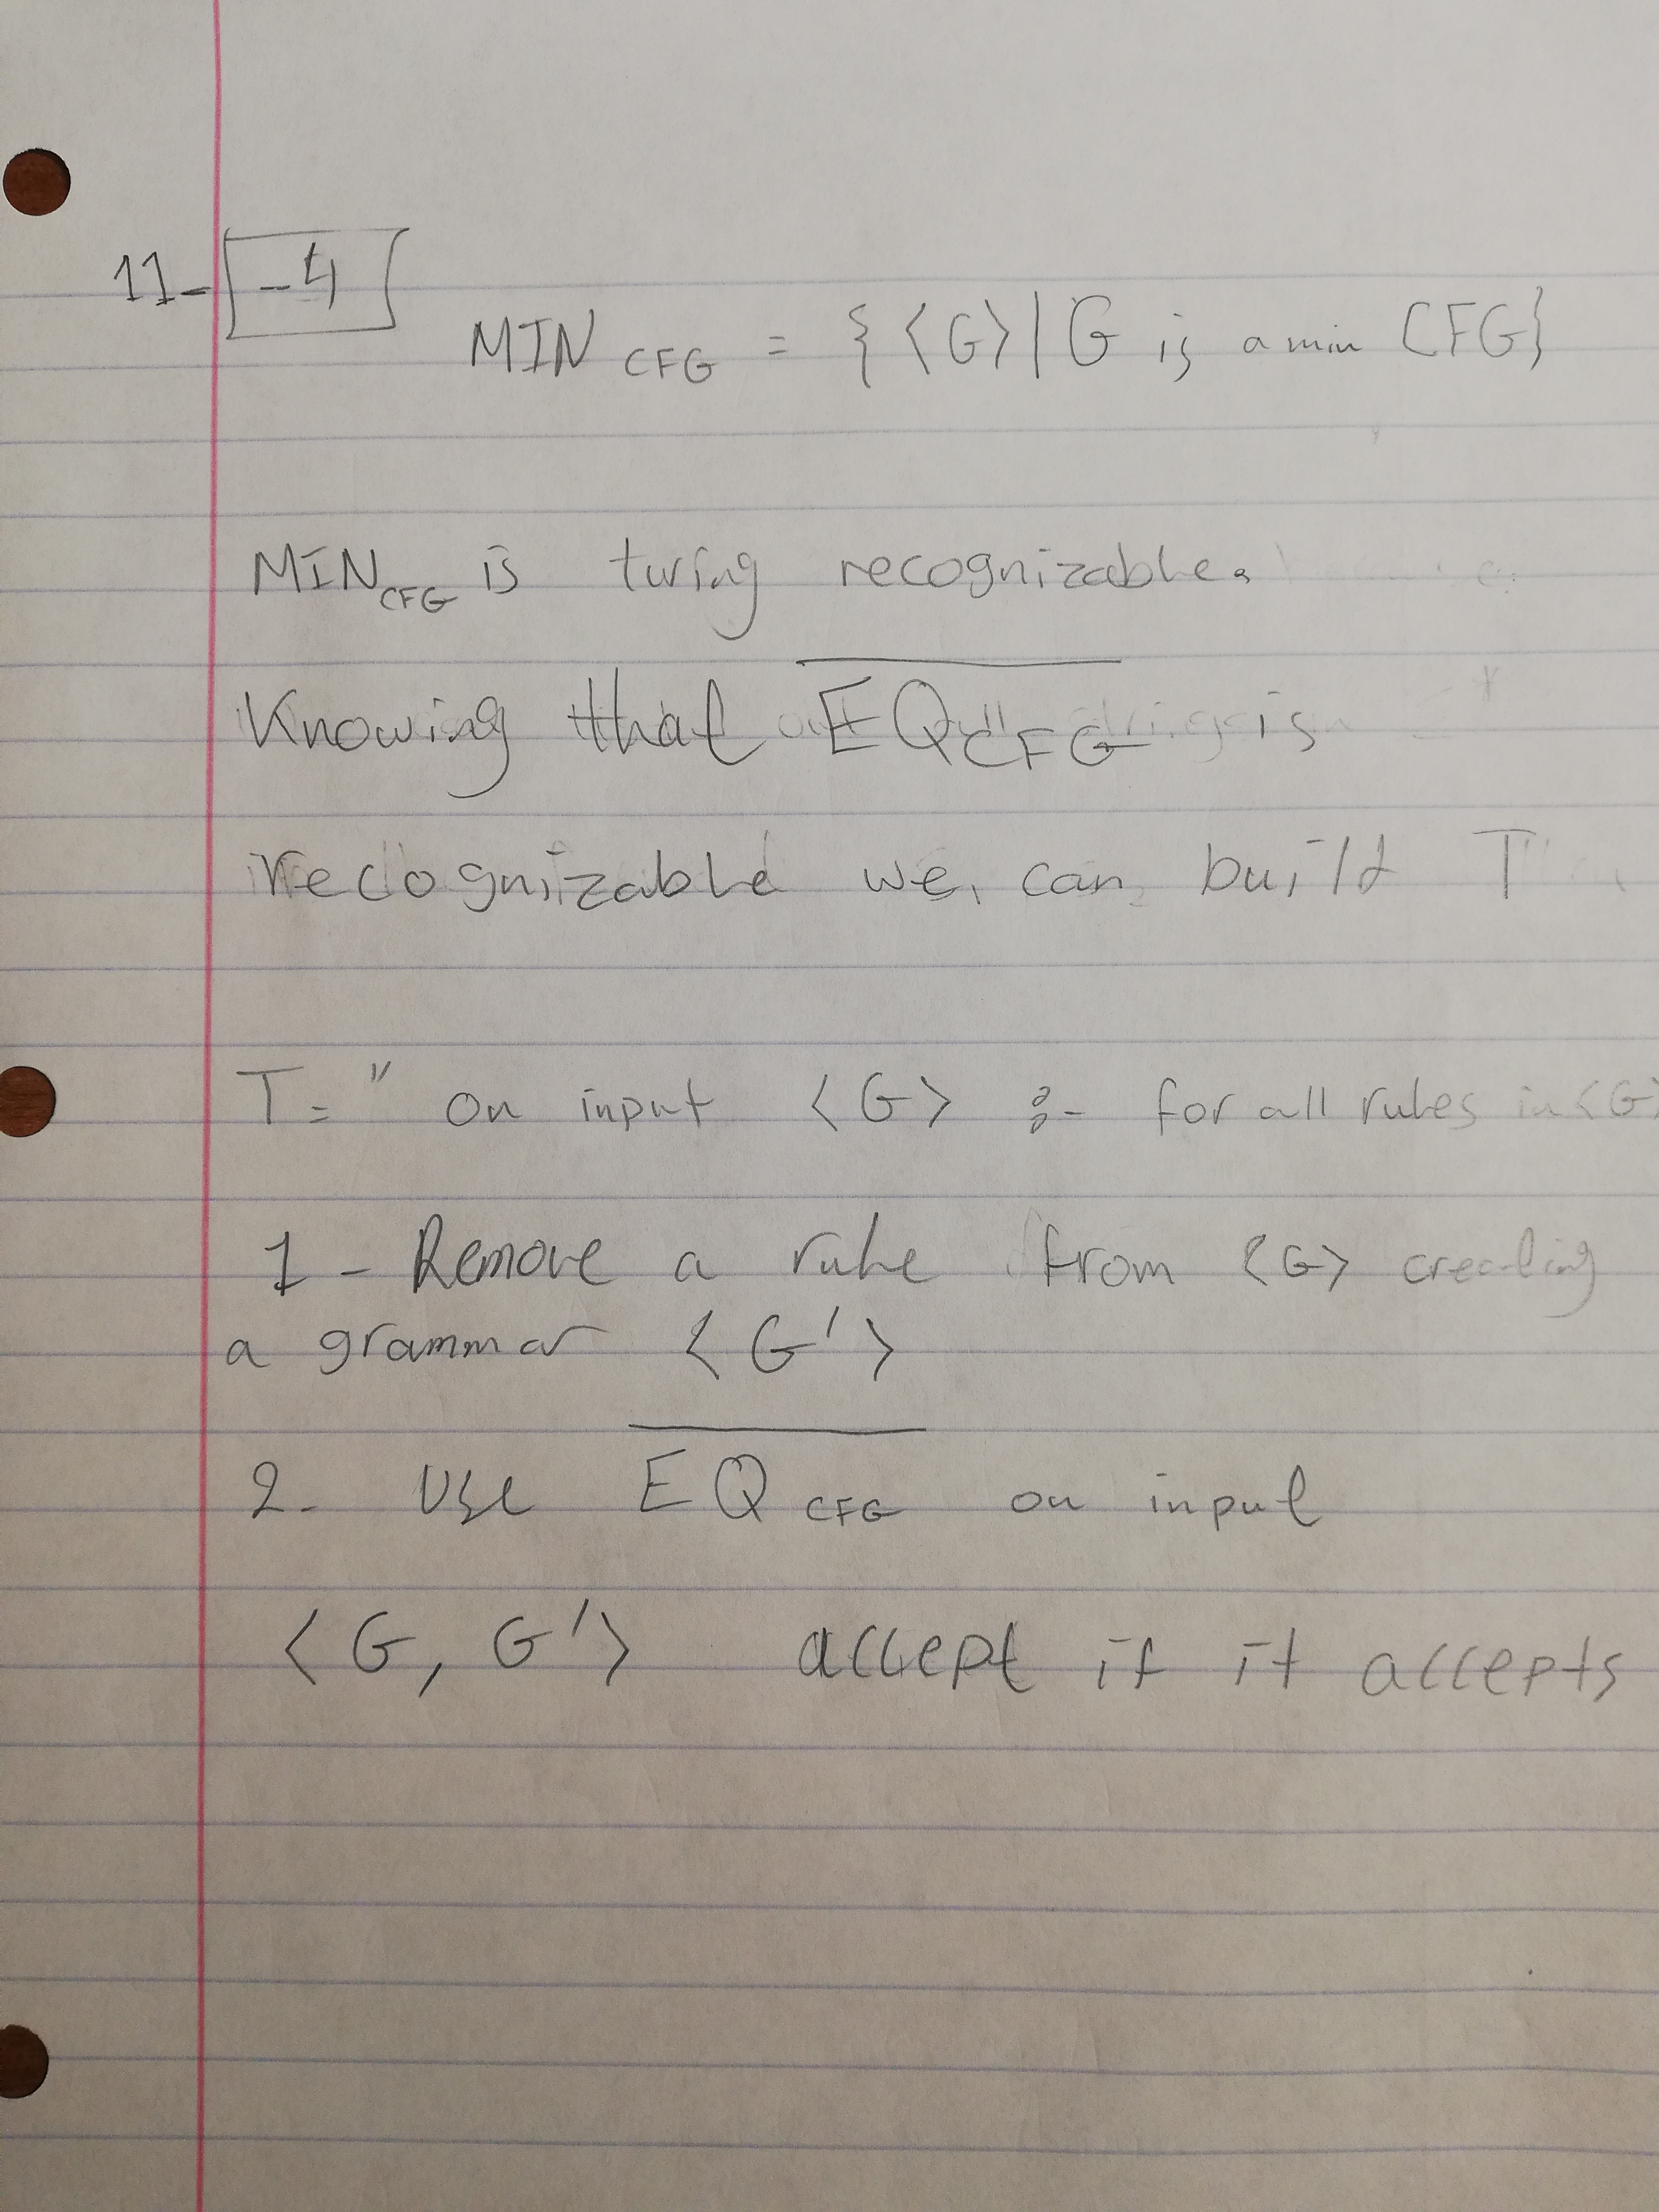 11- -4
MIN CFG = { <G> | G is a min CFG}
MIN CFG is turing recognizable.
Knowing that EQ CFG is
recognizable we can build T
T= " On input <G> :- for all rules in <G>
1 - Remove a rule from <G> creating
a grammar <G'>
2- Use EQ CFG on input
<G, G'> accept if it accepts